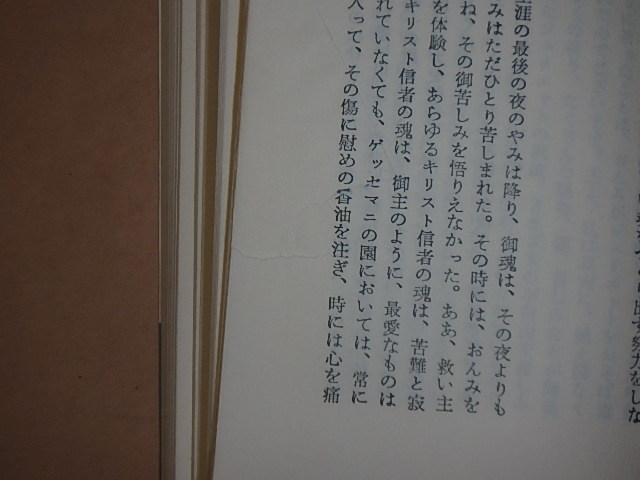 出て努力をしな
涯の最後の夜のやみは降り、御魂は、その夜よりも
みはただひとり苦しまれた。その時には、おんみを
ね、その御苦しみを悟りえなかった。ああ、救い主
を体験し、あらゆるキリスト信者の魂は、苦難と寂
キリスト信者の魂は、御主のように、最愛なものは
れていなくても、ゲッセマニの園においては、常に
入って、その傷に慰めの香油を注ぎ、時には心を痛